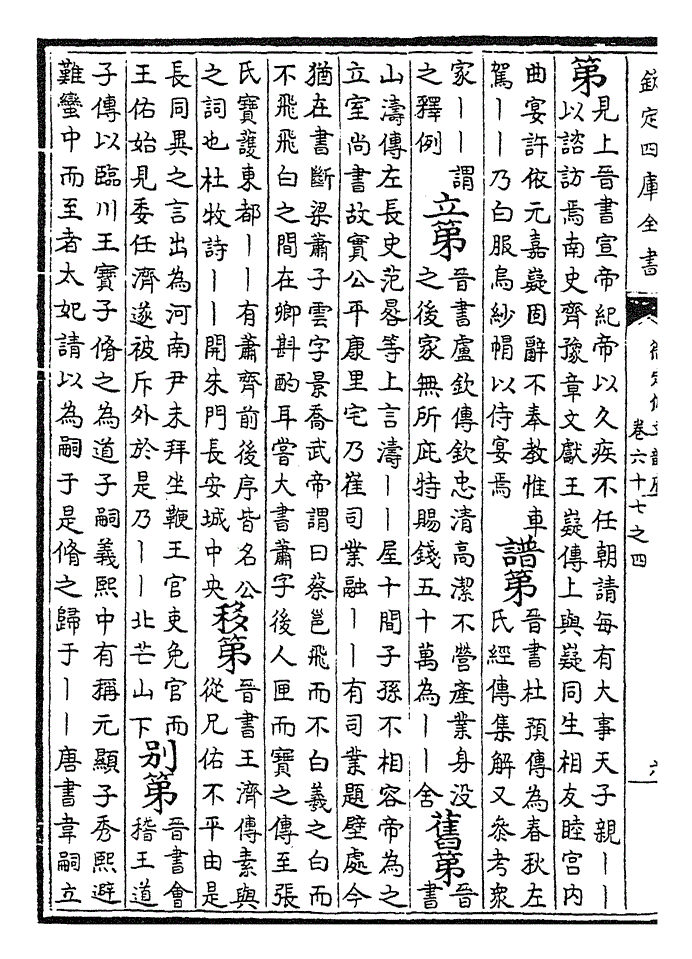 欽定四庫全書
卷六十七之四
第
見上晉書宣帝紀帝以久疾不任朝請每有大事天子親丨丨
以諮訪焉南史齊豫章文獻王嶷傳上與嶷同生相友睦宮内
曲宴許依元嘉嶷固辭不奉教惟車
駕丨丨乃白服烏紗㡌以侍宴焉
譜第
晉書杜預傳為春秋左
氏經傳集解又參考衆
家丨丨謂
之釋例
立第
晉書盧欽傳欽忠清高潔不營產業身没
之後家無所庇特賜錢五十萬為丨丨舍
舊第
晉
書
山濤傳左長史范晷等上言濤丨丨屋十間子孫不相容帝為之
立室尚書故實公平康里宅乃崔司業融丨丨有司業題壁處今
猶在書斷梁蕭子雲字景喬武帝謂曰蔡邕飛而不白羲之白而
不飛飛白之間在卿斟酌耳嘗大書蕭字後人匣而寶之傳至張
氏寶護東都丨丨有蕭齊前後序皆名公
之詞也杜牧詩丨丨開朱門長安城中央
移第
晉書王濟傳素與
從兄佑不平由是
長同異之言出為河南尹未拜坐鞭王官吏免官而
王佑始見委任濟遂被斥外於是乃丨丨北芒山下
别第
晉書會
稽王道
子傳以臨川王寶子脩之為道子嗣義熙中有稱元顯子秀熙避
難蠻中而至者太妃請以為嗣于是脩之歸于丨丨唐書韋嗣立